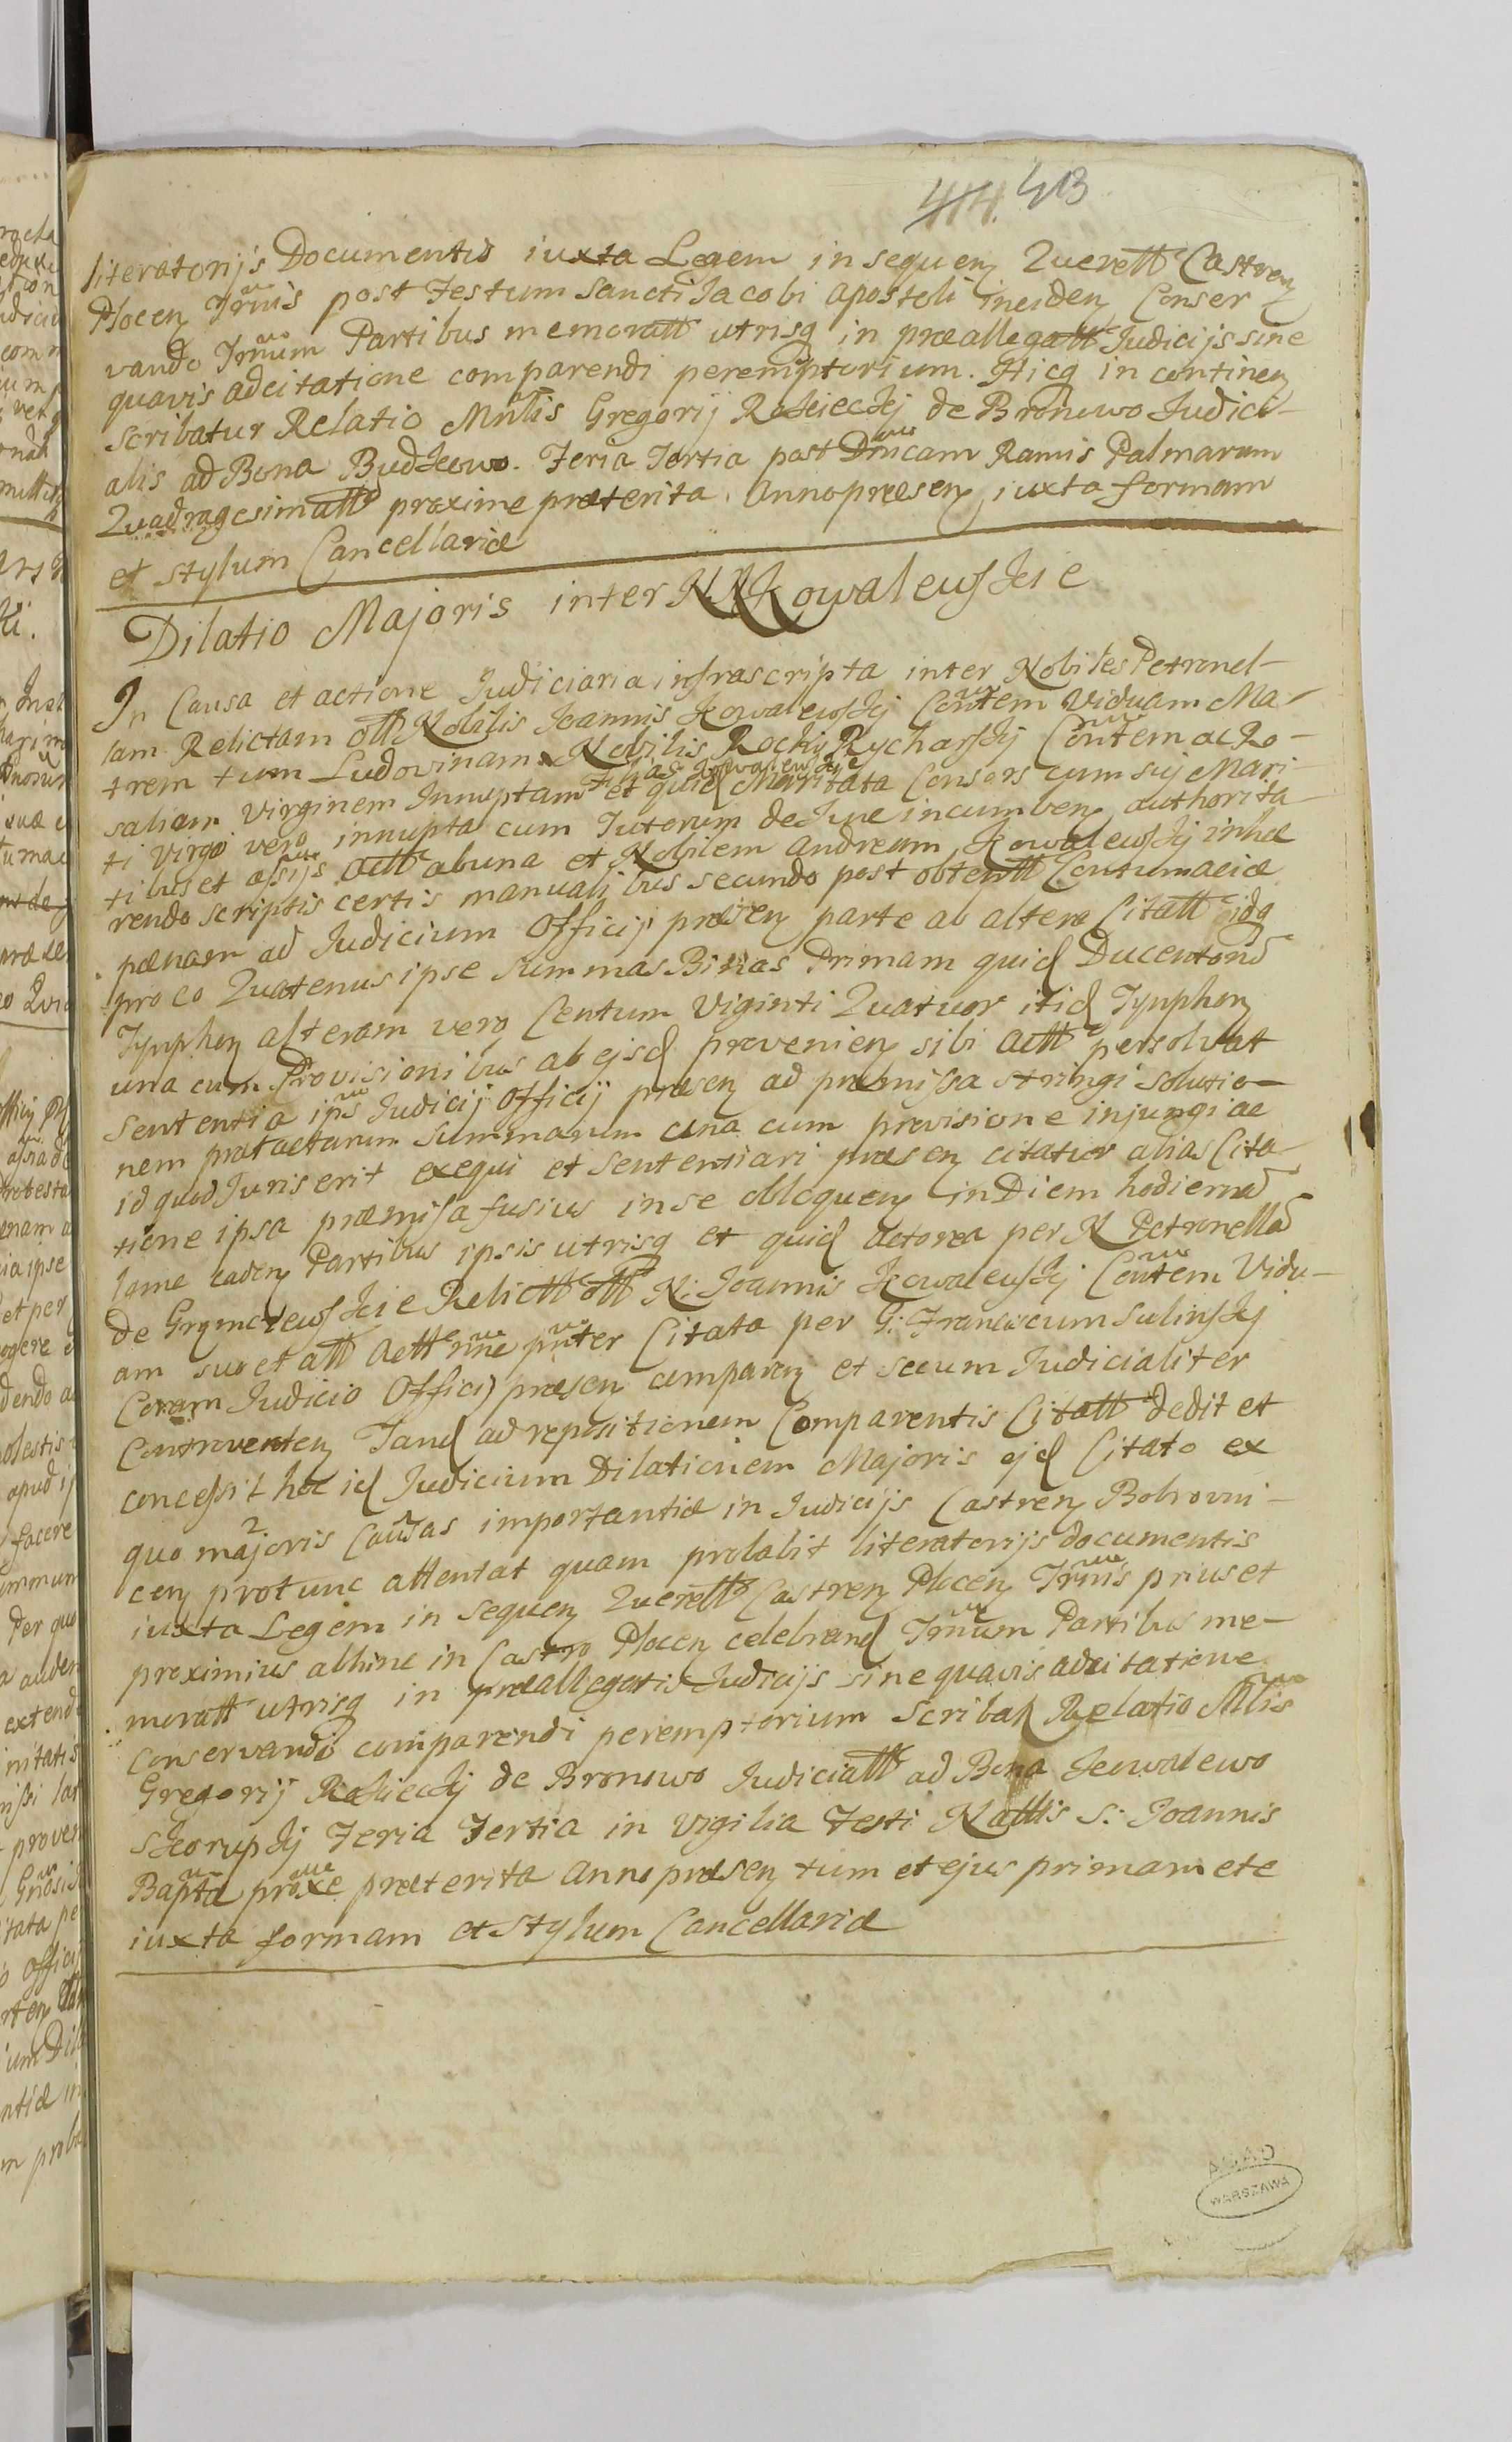 414. 413
literatorijs Documentis iuxta Legem in sequen Querell Castren
Plocen Trnis post Festum Sancti Jacobi Apostoli inciden Conser
vando Trnum Partibus memoratt utrisq in præallegatt Judicijs sine
quavis adcitatione comparendi peremptorium. Hicq in continen
scribatur Relatio Mnlis Gregorij Rokickj de Bronowo Judici-
alis ad Bona Budkowo. Feria Tertia post Dnicam Ramis Palmarum
Quadragesimatt proxime præterita. Anno præsen iuxta formam
et stylum Cancellariæ
Dilatio Majoris inter NN Kowalewskie
In Causa et actione Judiciaria infrascripta inter Nobiles Petronel-
lam Relictam ott Nobilis Joannis Kowalewskj Contem Viduam Ma-
trem tum Ludovinam Nobilis Rochij Rycharskj Contem ac Ro-
saliam Virginem Innuptam Filias Kowalewskie et quid Maritata Consors cum sui Mari-
ti Virgo vero innupta cum Tutorum de Jure incumben authorita-
tibus et assijs Actt ab una et Nobilem Andream Kowalewskj inhæ
rendo scriptis certis manualibus secundo post obtentt Contumaciæ
pænam ad Judicium Officij præsen parte ab altera Citatt idq
pro eo Quatenus ipse Summas Binas Primam quid Ducentorū
Tynphon alteram vero Centum Viginti Quatuor itid Tynphon
una cum Provisionibus ab ejsd provenien sibi Actt persolvat
Sententia ips Judicij Officij præsen ad præmissa stringi solutio-
nem prætactarum summarum una cum provisione injungi ac
id quod Juris erit exequi et sententiari præsen citatur alias Cita-
tione ipsa præmissa fusius in se obloquen in Diem hodiernā
lome caden Partibus ipsis utrisq et quid Actorea per N Petronellā
de Grymczewskie Relictt ott N: Joannis Kowalewskj Contem Vidu-
am suo et att Actt nne pnter Citata per G: Franciscum Sulinskj
Coram Judicio Officij præsen comparen et secum Judicialiter
Controverten Tand ad repositionem Comparentis Citatt dedit et
concessit hoc id Judicium Dilationem Majoris ejd Citato ex
quo majoris Causas importantiæ in Judicijs Castren Bobrowni-
cen protunc attentat quam probabit literatorijs documentis
iuxta Legem in sequen Querell Castren Plocen Trnis prius et
proximius abhinc in Castro Plocen celebrand Trnum Partibus me-
moratt utrisq in præallegatis Judicijs sine quavis adcitatione
conservando comparendi peremptorium Scribat Relatio Mlis
Gregorij Rokickj de Bronowo Judiciatt ad Bona Kowalewo
Skorupkj Feria Tertia in Vigilia Festi Nattis S: Joannis
Bapta proxe præterita Anno præsen tum et ejus primam etc
iuxta formam et Stylum Cancellariæ
AGAD
WARSZAWA